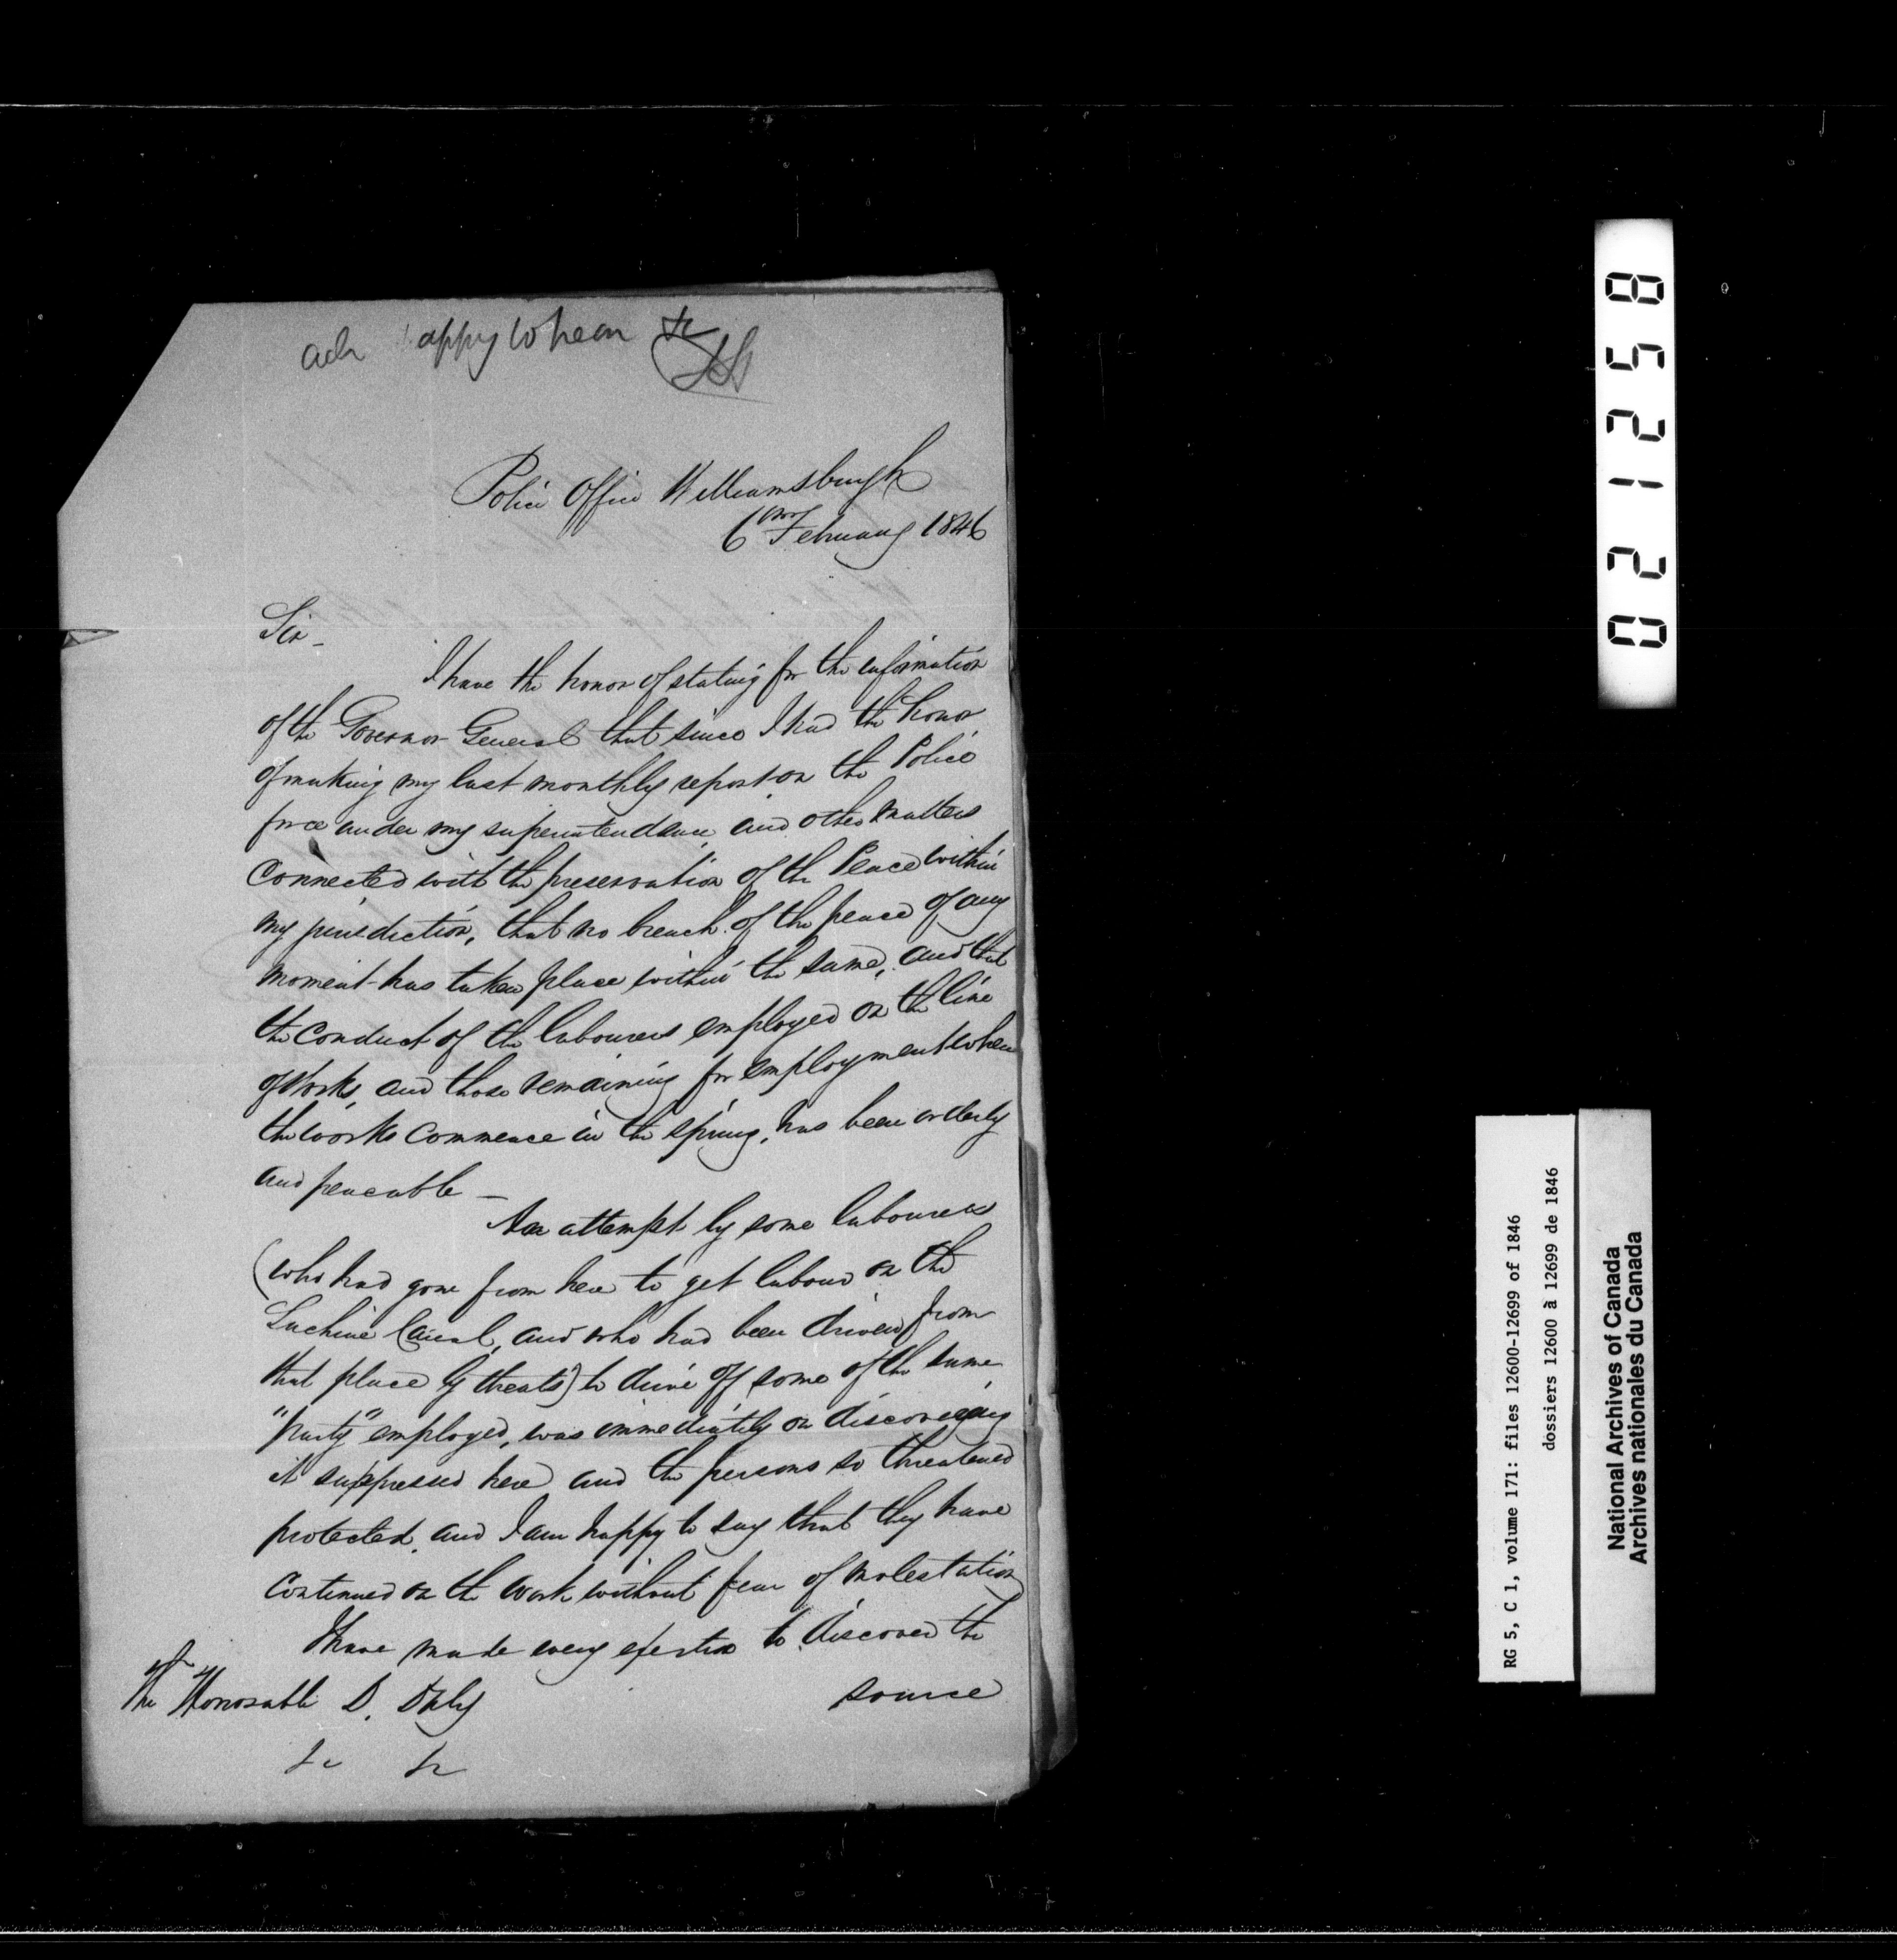 ack happy to hear &c
Police Office Williamsburgh
6 February 1846
Sir –
I have the honor of stating for the information
of the Governor General that since I had the honor
of making my last monthly report on the Police
force under my superintendence, and other matters
connected with the preservation of the Peace within
my jurisdiction, that no breach of the peace of any
moment has taken place within the same, and that
the conduct of the labourers employed on the line
of works, and those remaining for employment when
the works commence in the spring, has been orderly
and peaceable –
An attempt by some labourers
(who had gone from here to get labour on the
Lachine Canal, and who had been driven from
that place by threats) to drive off some of the same
"party" employed, was immediately on discovering
it suppressed here and the persons so threatened
protected, and I am happy to say that they have
continued on the work without fear of molestation
I have made every exertion to discover the
The Honorable D. Daly
source
&c &c
021258
RG 5, C 1, volume 171: files 12600-12699 of 1846
dossiers 12600 à 12699 de 1846
National Archives of Canada
Archives nationales du Canada